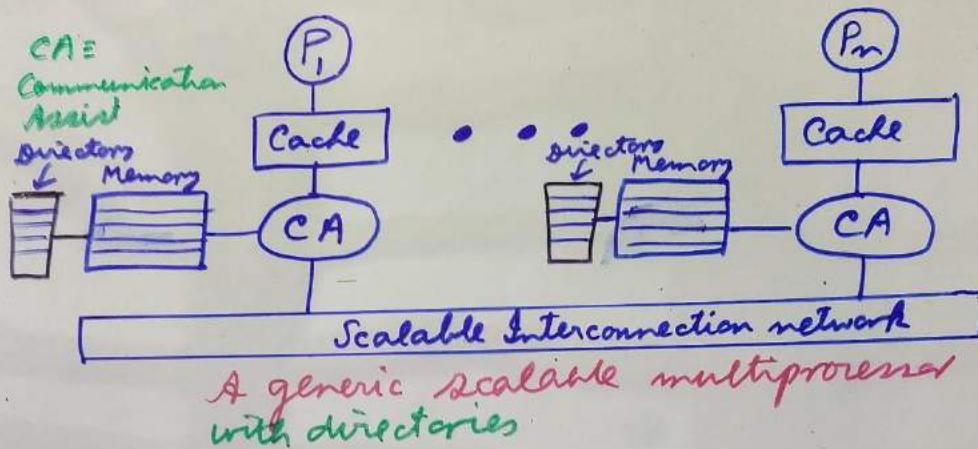 CA ≡
Communication
Assist
P1
Pn
Cache
Cache
Directory
Memory
Directory
Memory
CA
CA
Scalable Interconnection network
A generic scalable multiprocessor
with directories